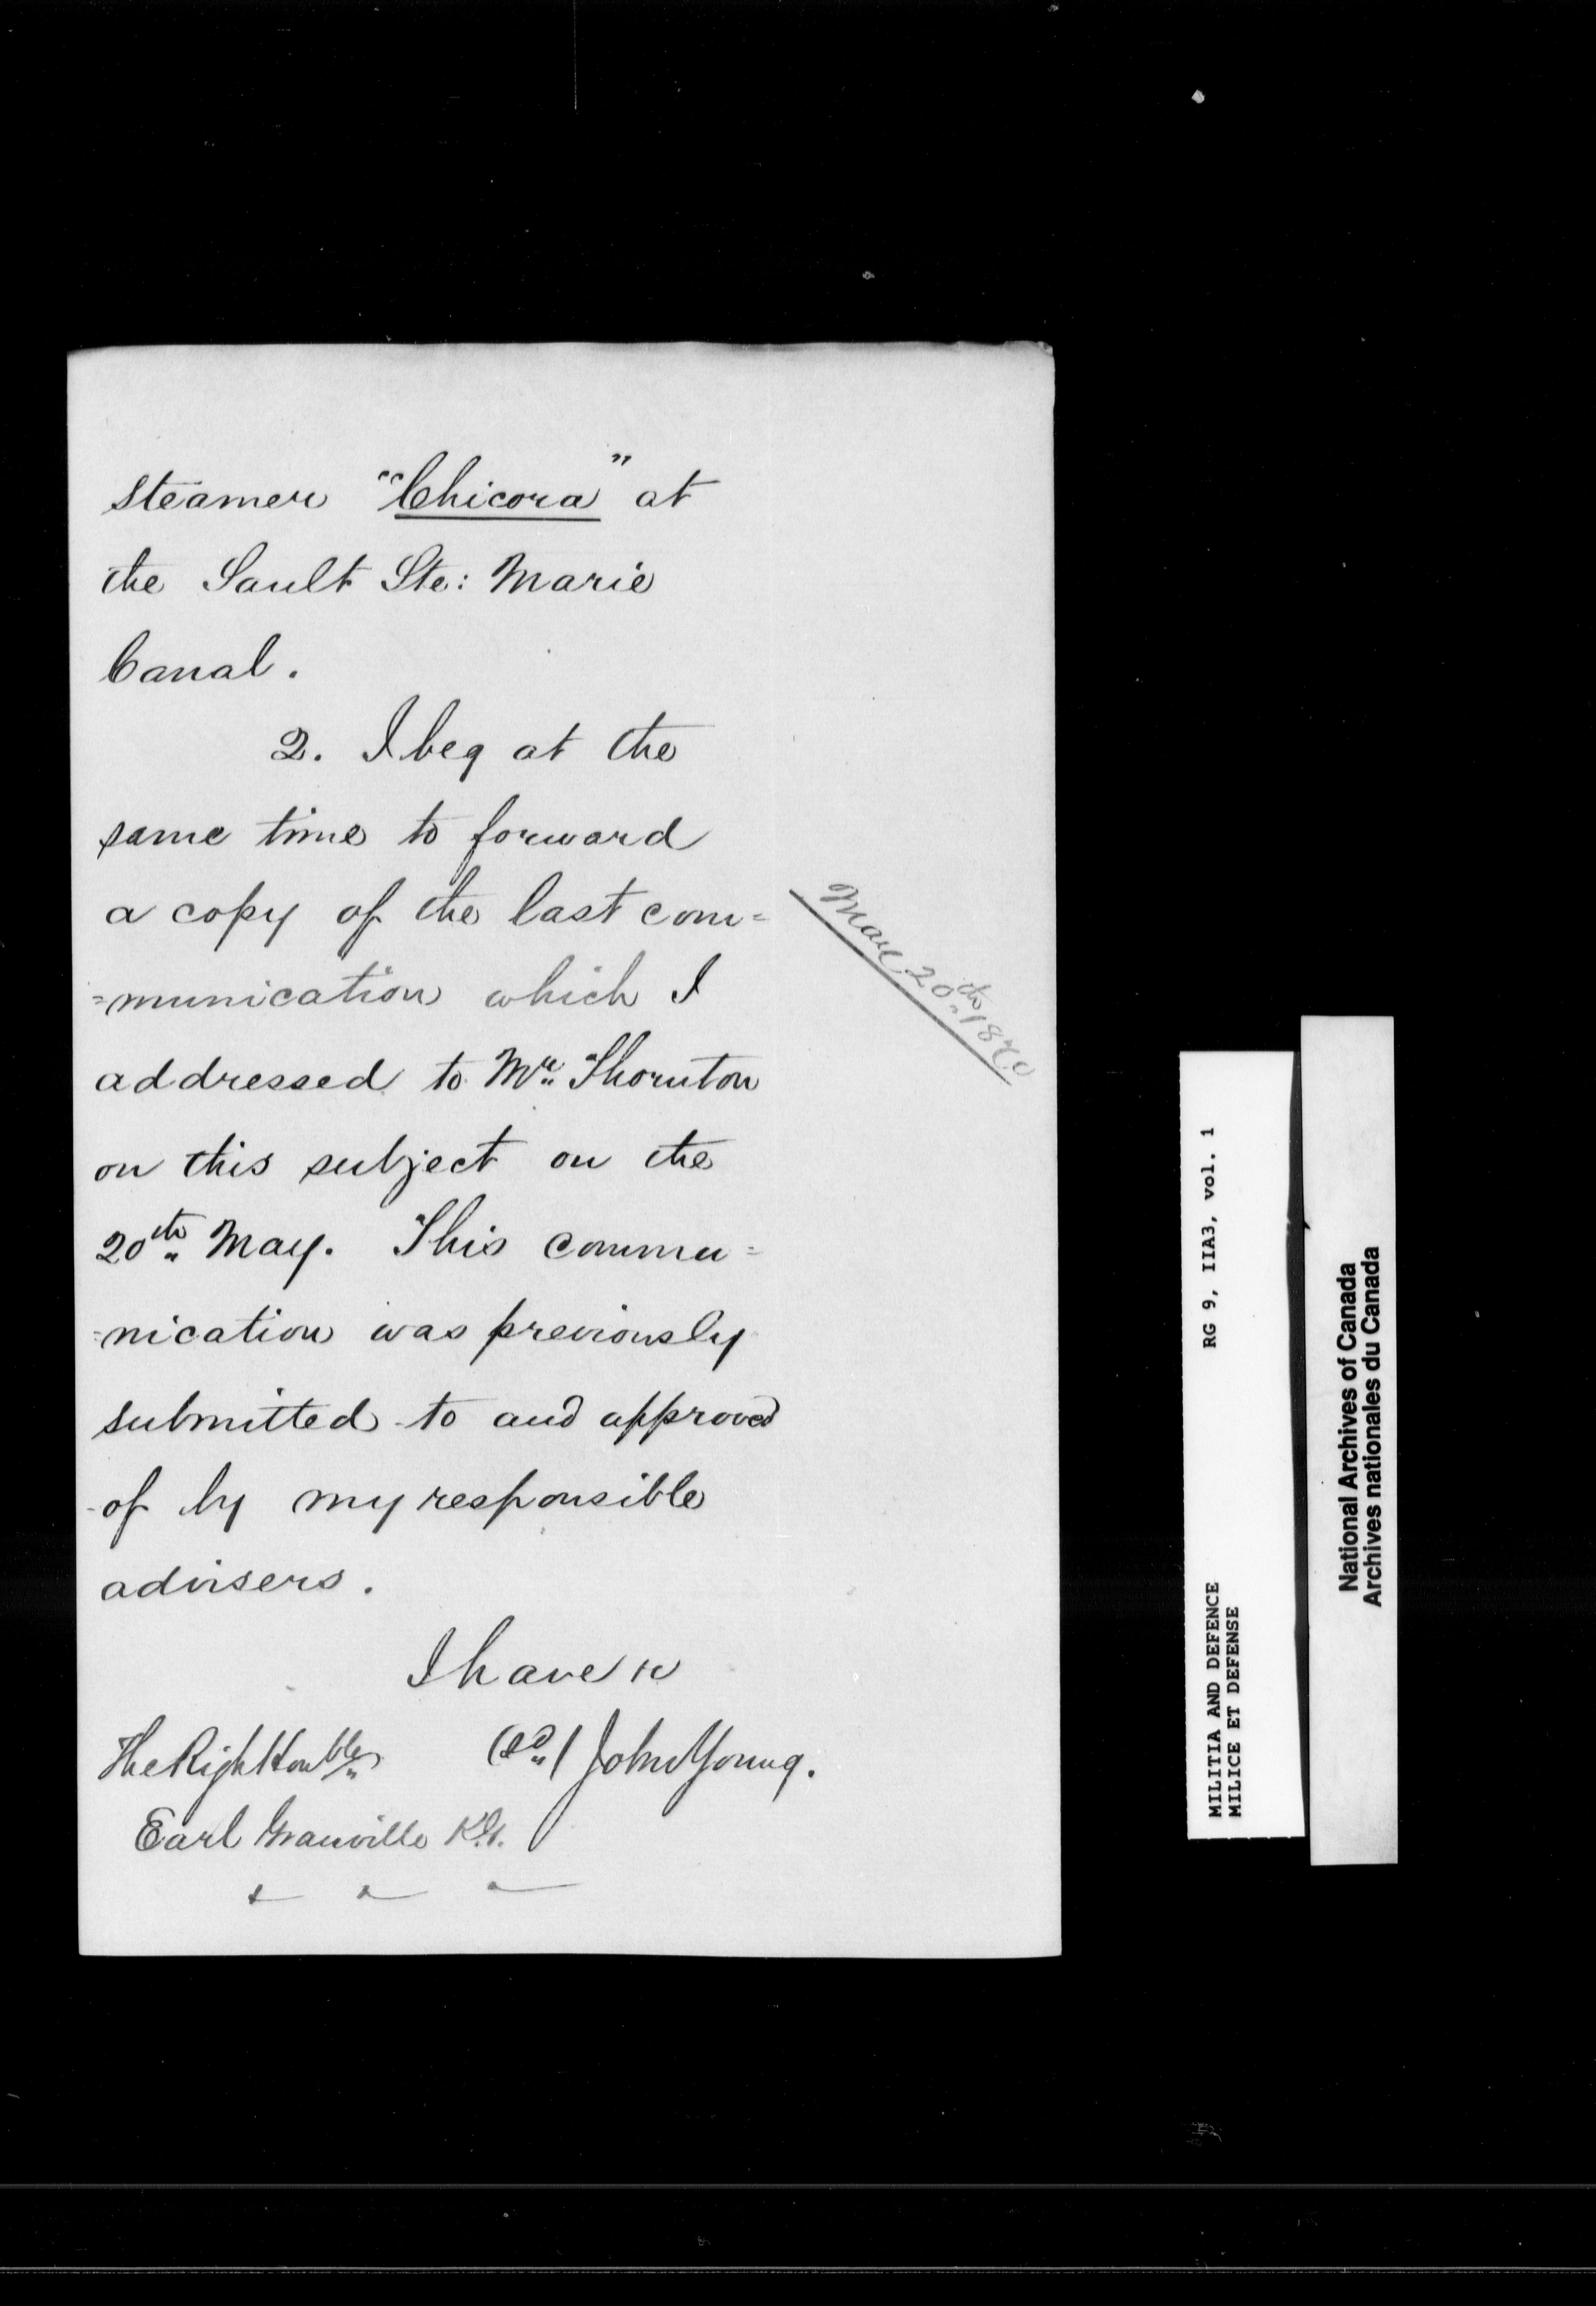 steamer "Chicora" at
the Sault Ste: Marie
Canal.
2. I beg at the
same time to forward
a copy of the last com=
=munication which I
addressed to Mr. Thornton
on this subject on the
20th May. This commu=
=nication was previously
submitted to and approved
of by my responsible
advisers.
I have &c
(sd) John Young.
The Right Honble
Earl Granville K.G.
May 20th 1870
RG 9, IIA3, vol. 1
MILITIA AND DEFENCE
MILICE ET DEFENSE
National Archives of Canada
Archives nationales du Canada